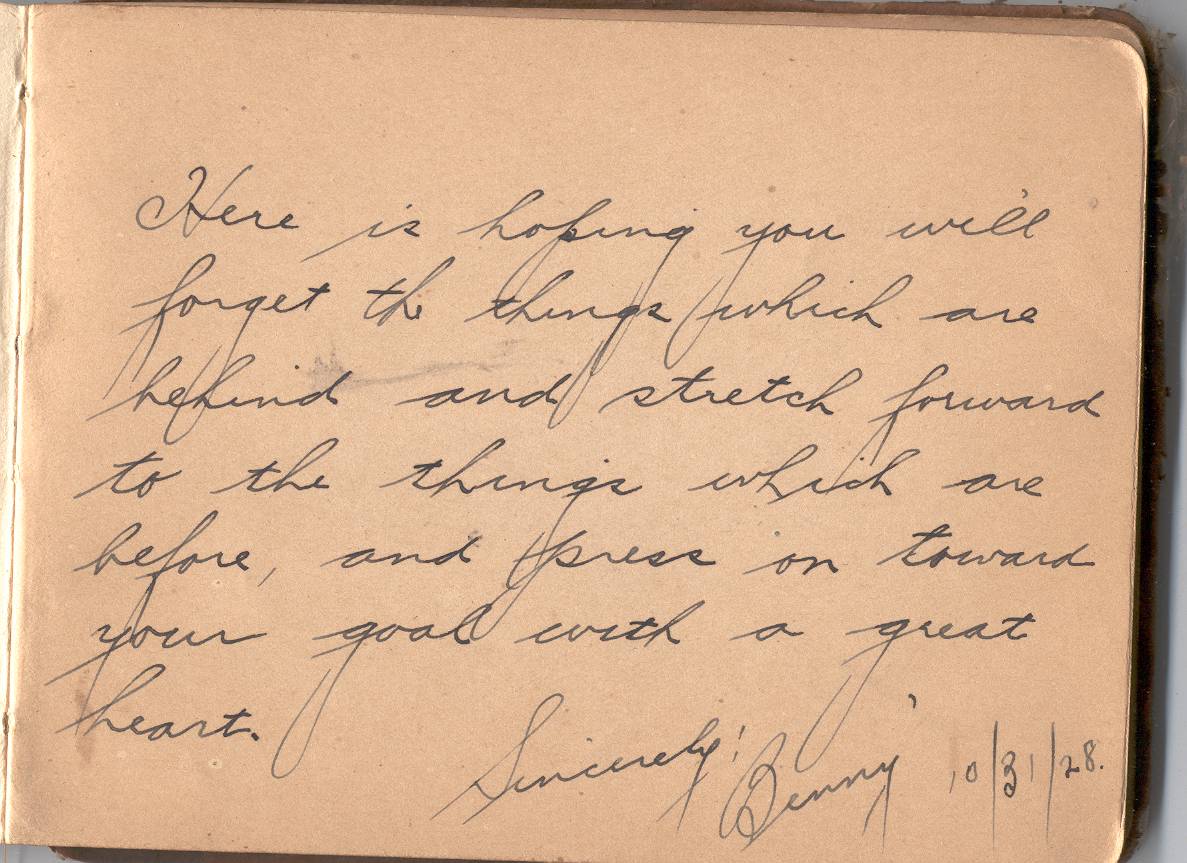 Here is hoping you will
forget the things which are
behind and stretch forward
to the things which are
before, and press on toward
your goal with a great
heart.
Sincerely! Benny 10/31/28.